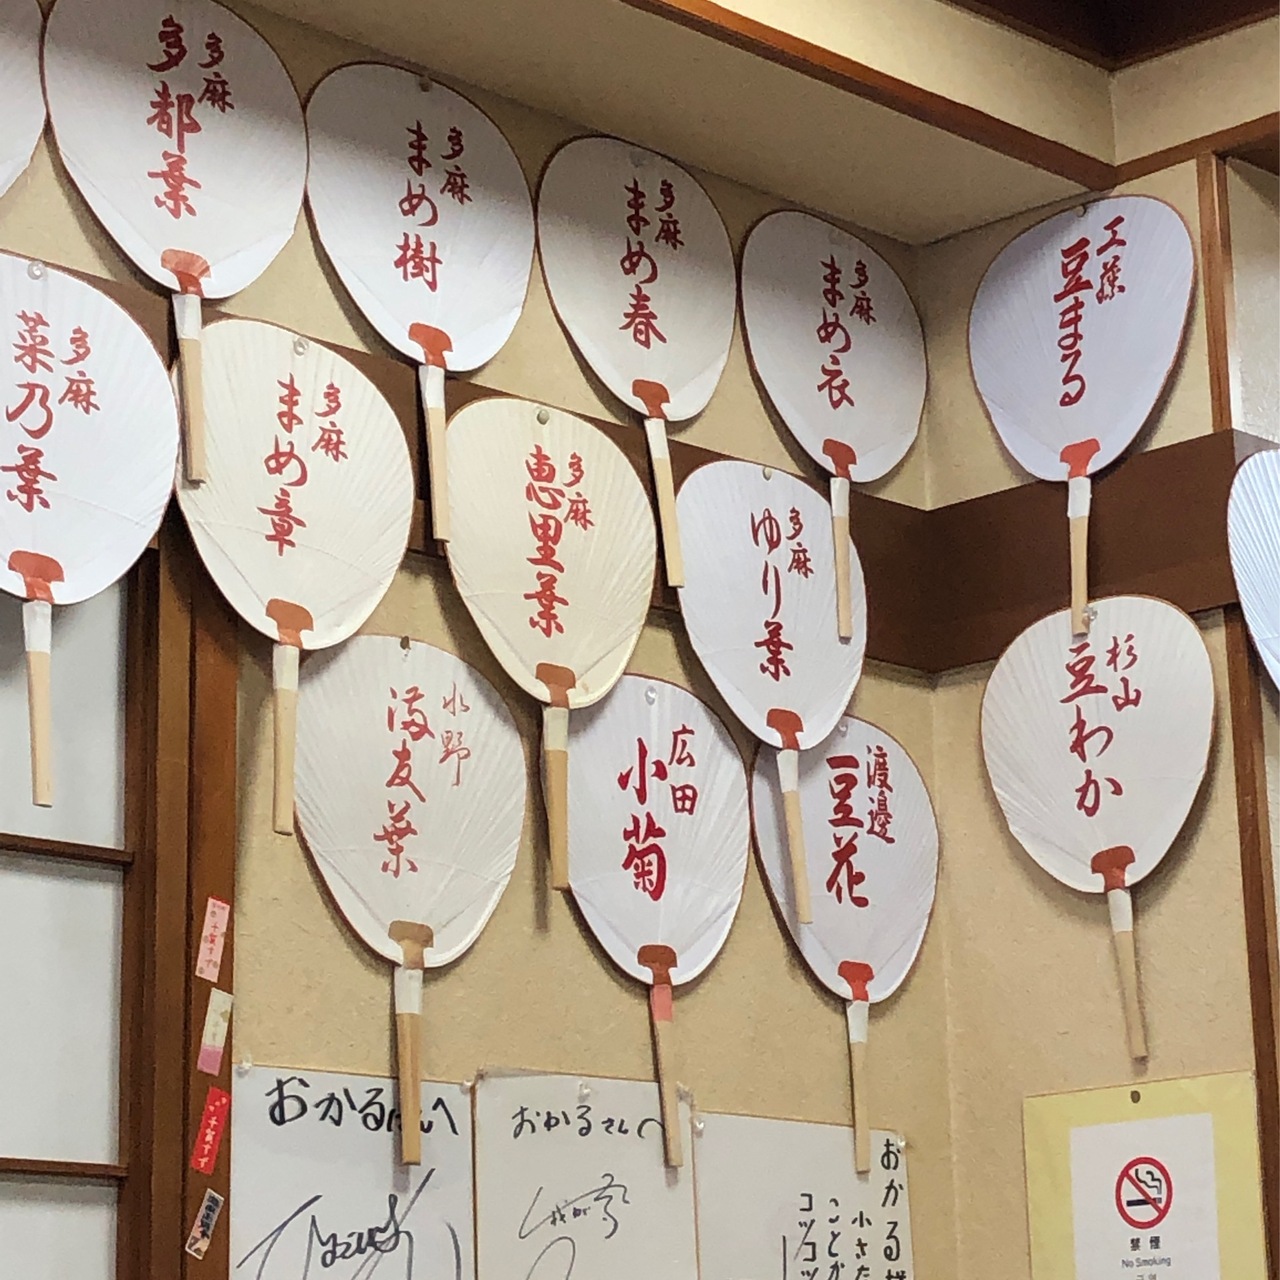 多麻
多都葉
多麻
まめ樹
多麻
まめ春
多麻
まめ衣
工藤
豆まる
多麻
菜乃葉
多麻
まめ章
多麻
恵里葉
多麻
ゆり葉
杉山
豆わか
水野
満友葉
広田
小菊
渡邊
豆花
おかるさんへ
おかるさんへ
おかる様
小さた
ことが
コツコツ
禁煙
No Smoking